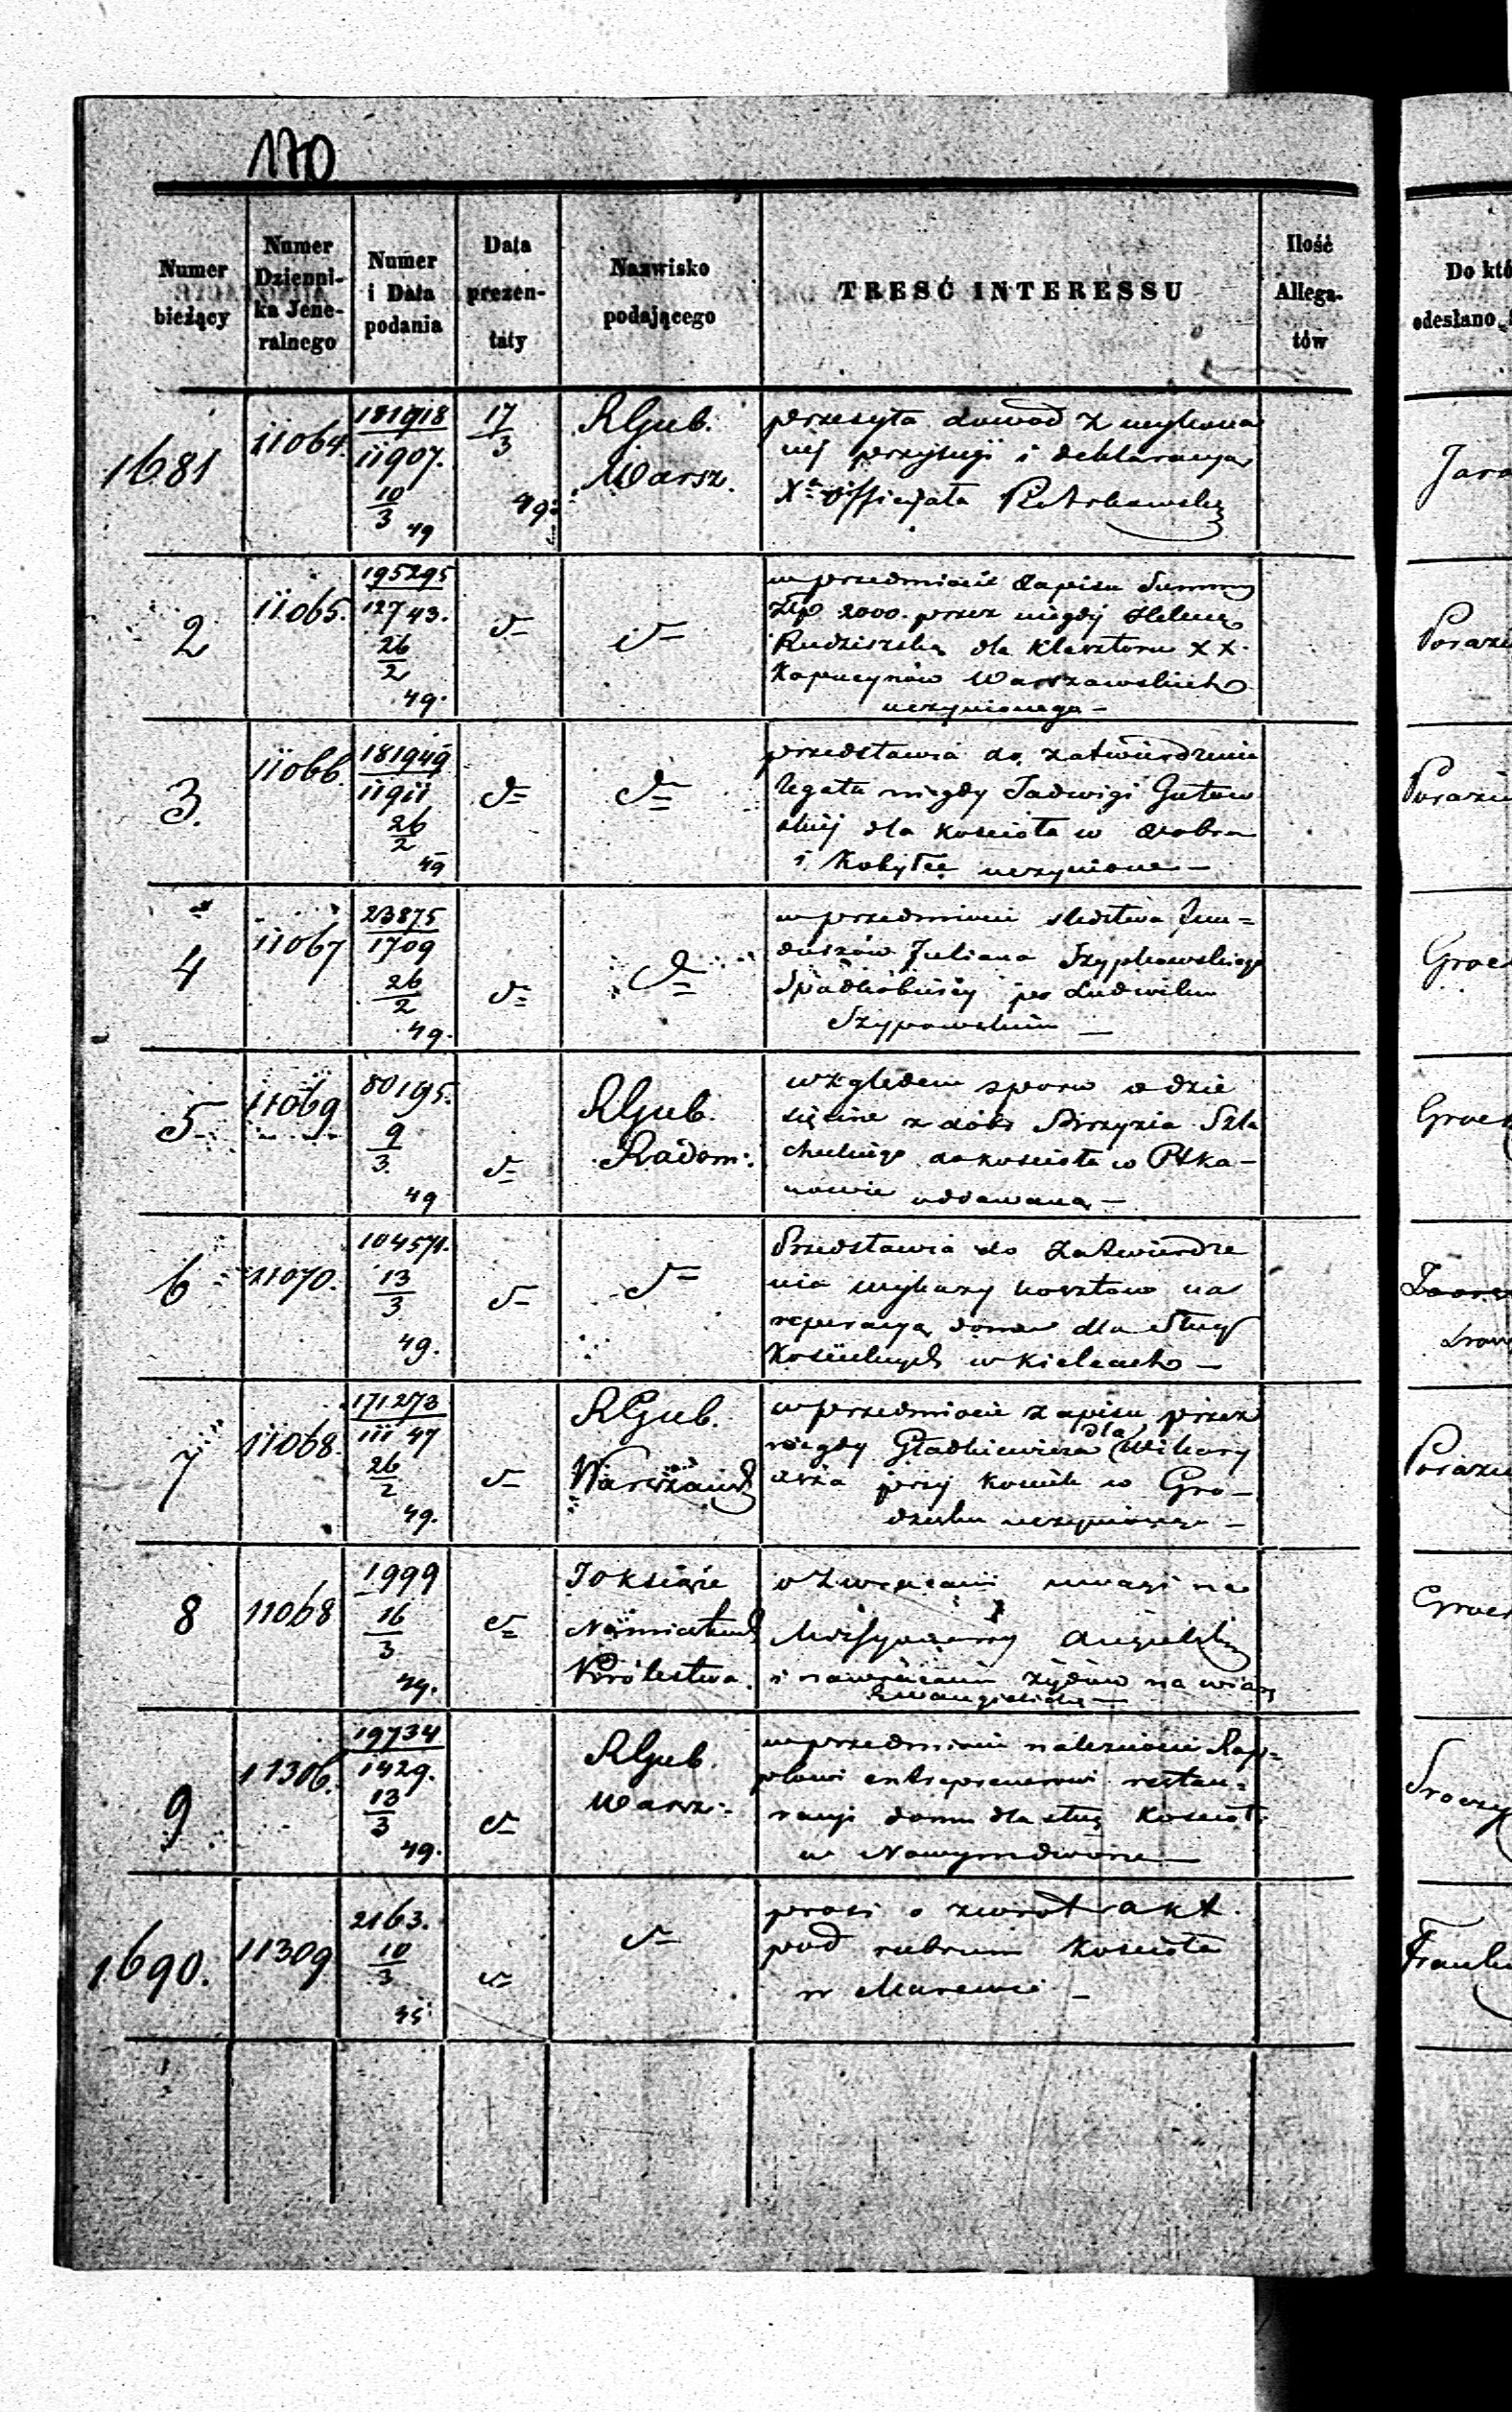 170
Numer bieżący
Numer Dzienni-ka Jene-ralnego
Numer i Data podania
Data prezen-taty
Nazwisko podającego
TREŚĆ INTERESSU
Ilość Allega-tów
Do któ
odesłano
1681
11064.
181918
11907.
10/3 49
17/3 49
RGub.
Warsz.
przesyła dowod z wykona
nej przysięgi i deklaracyą
Xa Officyała
2
11065.
195295
12743.
26/2
49.
d=
d=
w przedmiocie zapisu Summy
Złp 2000. przez niegdy Helenę
Rudzińską dla klasztoru XX.
Kapucynów Warszawskich
uczynionego –
3.
11066.
181949
11911
26/2
49
d=
d=
przedstawia do zatwierdzenia
legata niegdy Jadwigi Gutow
skiej dla kościoła w Dobra
i Kobyłce uczynione –
4
11067
23875
1709
26/2
49.
d=
d=
w przedmiocie śledztwa fun=
duszów Juliana Szypkowskiego
Spadkobiercy po Ludwiku
–
5
11069
80195.
9/3
49
d=
RGub.
Radom:
względem sporu o dzie
sięcinę z dóbr
checkiego do kościoła w Ptka–
nowie oddawaną –
6
11070.
104571.
13/3
49.
d=
d=
Przedstawia do zatwierdze
nia wykazy kosztów na
reperacyą domu dla sług
Kościelnych w Kielcach –
7
11068.
171273
11147
26/2
49.
d=
RGub.
Warszaws
w przedmiocie zapisu przez
niegdy Gładkiewicza dla Wikary
usza przy kościele w Gro–
dzisku uczynionego –
8
11068
1999
16/3
49.
d=
JO Książe
Namiestnik
Królestwa.
o zwróceniu uwagi na
Missyonarzy Angielskich
i nawracaniu żydów na wiarę
Ewangielicką –
9
11306.
19734
1429.
13/3
49.
d=
RGub.
Warsz:
w przedmiocie należności Rap=
plowi entreprenerowi restau=
racyi domu dla sług Kościoł:
w Nowymdworze –
1690.
11309
2163.
10/3
d=
d=
prosi o zwrot akt.
pod rubrum Kościoła
w –